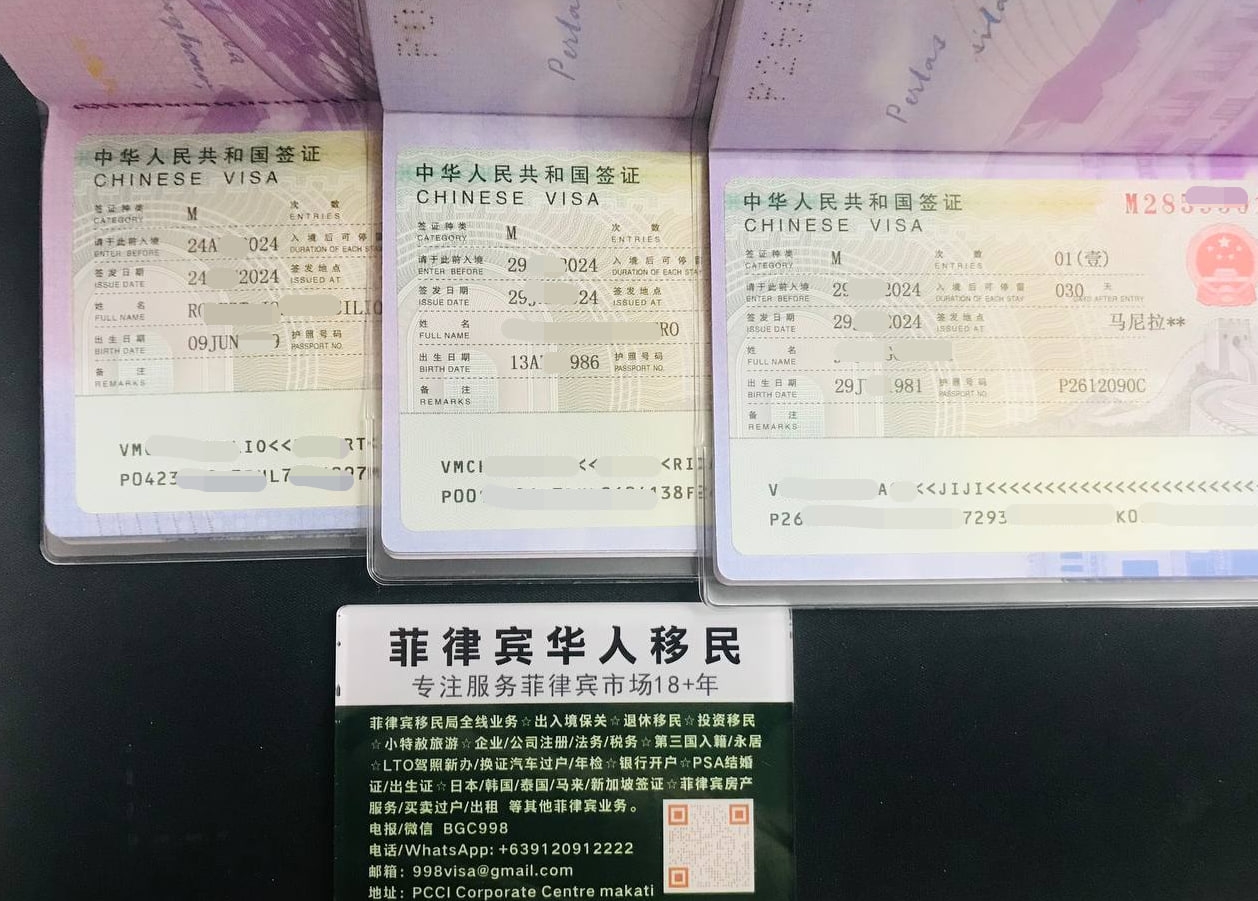 Pertas
Pertas
中华人民共和国签证
CHINESE VISA
签证种类
CATEGORY
M
次 数
ENTRIES
请于此前入境
ENTER BEFORE
24A 2024
入境后可停留
DURATION OF EACH STA
签发日期
ISSUE DATE
24 2024
签发地点
ISSUED AT
姓 名
FULL NAME
ILIO
出生日期
BIRTH DATE
09JUN
护照号码
PASSPORT NO.
备 注
REMARKS
IO<<
RT<
PO423
中华人民共和国签证
CHINESE VISA
签证种类
CATEGORY
M
次 数
ENTRIES
请于此前入境
ENTER BEFORE
29 2024
入境后可停留
DURATION OF EACH STA
签发日期
ISSUE DATE
29 24
签发地点
ISSUED AT
姓 名
FULL NAME
RO
出生日期
BIRTH DATE
13A 986
护照号码
PASSPORT NO.
备 注
REMARKS
<< <RI
138F
中华人民共和国签证
CHINESE VISA
M285
签证种类
CATEGORY
M
次 数
ENTRIES
01(壹)
请于此前入境
ENTER BEFORE
29 2024
入境后可停留
DURATION OF STAY
030
天
DAYS AFTER ENTRY
签发日期
ISSUE DATE
29 2024
签发地点
ISSUED AT
马尼拉**
姓 名
FULL NAME
出生日期
BIRTH DATE
29J 1981
护照号码
PASSPORT NO.
P2612090C
备 注
REMARKS
V A <<JIJI<<<<<<<<<<<<<<<<<<<<<<<
P26 7293 KO
菲律宾华人移民
专注服务菲律宾市场18+年
菲律宾移民局全线业务☆出入境保关☆退休移民☆投资移民
☆小特赦旅游☆企业/公司注册/法务/税务☆第三国入籍/永居
☆LTO驾照新办/换证汽车过户/年检☆银行开户☆PSA结婚
证/出生证☆日本/韩国/泰国/马来/新加坡签证☆菲律宾房产
服务/买卖过户/出租 等其他菲律宾业务。
电报/微信 BGC998
电话/WhatsApp: +639120912222
邮箱: 998visa@gmail.com
地址: PCCI Corporate Centre makati